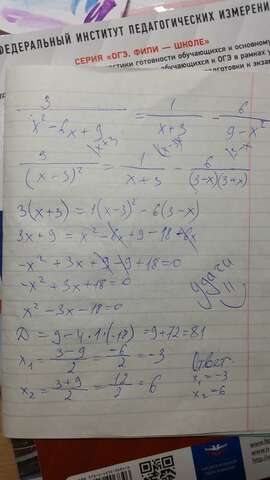 ФЕДЕРАЛЬНЫЙ ИНСТИТУТ ПЕДАГОГИЧЕСКИХ ИЗМЕРЕНИ
СЕРИЯ «ОГЭ. ФИПИ — ШКОЛЕ»
остики готовности обучающихся к основному
обучающихся к ОГЭ в рамках
3/(x²-6x+9) = 1/(x+3) - 6/(9-x²)
3/(x-3)² = 1/(x+3) - 6/((3-x)(3+x))
3(x+3)=1(x-3)²-6(3-x)
3x+9=x²-6x+9-18+6x
-x²+3x+9-9+18=0
-x²+3x+18=0
x²-3x-18=0
удачи
D=9-4·1·(-18)=9+72=81
x₁=(3-9)/2=-6/2=-3
Ответ:
x₁=-3
x₂=(3+9)/2=12/2=6
x₂=6